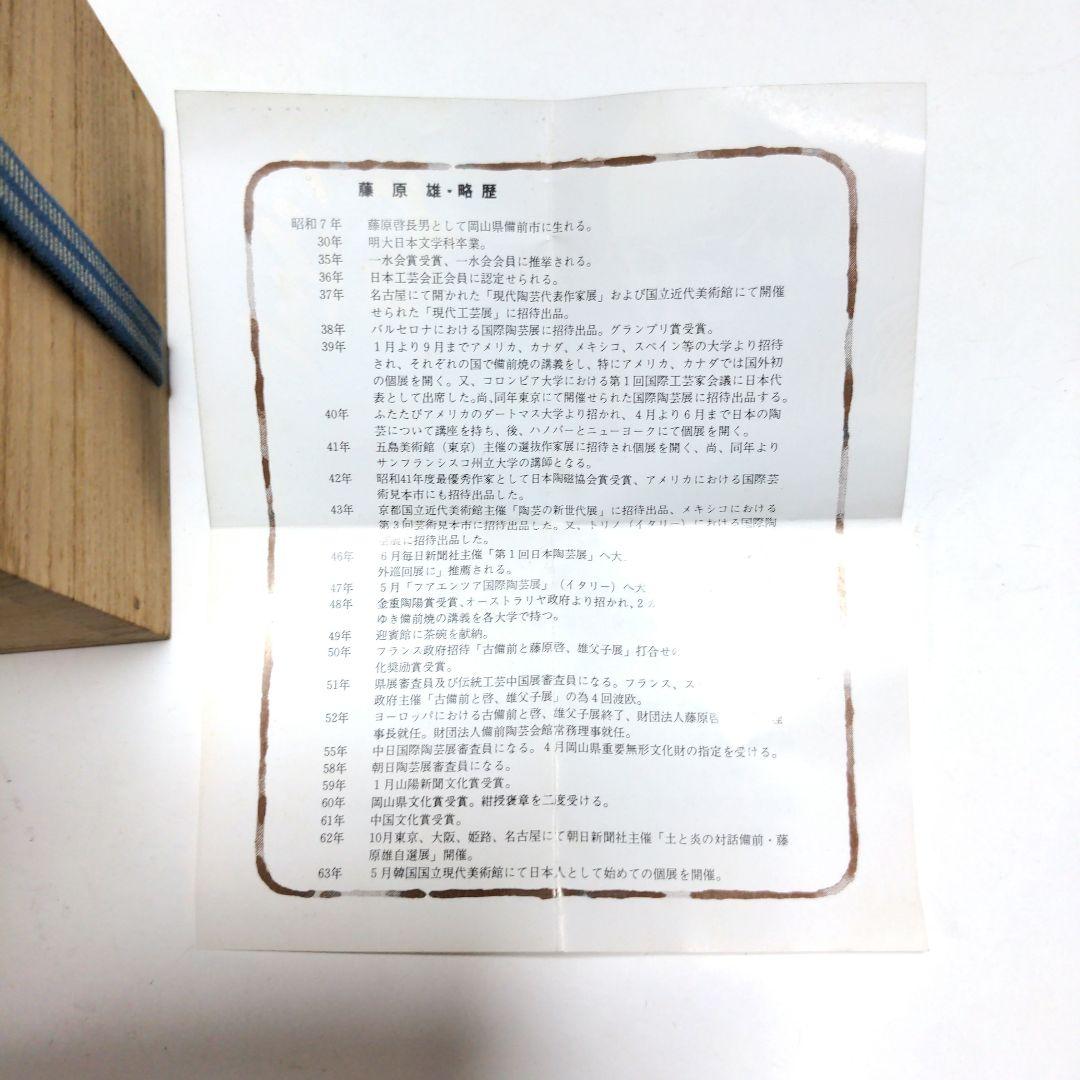 藤原 雄・略歴
昭和7年 藤原啓長男として岡山県備前市に生れる。
30年 明大日本文学科卒業。
35年 一水会賞受賞、一水会会員に推挙される。
36年 日本工芸会正会員に認定せられる。
37年 名古屋にて開かれた「現代陶芸代表作家展」および国立近代美術館にて開催
せられた「現代工芸展」に招待出品。
38年 バルセロナにおける国際陶芸展に招待出品。グランプリ賞受賞。
39年 1月より9月までアメリカ、カナダ、メキシコ、スペイン等の大学より招待
され、それぞれの国で備前焼の講義をし、特にアメリカ、カナダでは国外初
の個展を開く。又、コロンビア大学における第1回国際工芸家会議に日本代
表として出席した。尚、同年東京にて開催せられた国際陶芸展に招待出品する。
40年 ふたたびアメリカのダートマス大学より招かれ、4月より6月まで日本の陶
芸について講座を持ち、後、ハノバーとニューヨークにて個展を開く。
41年 五島美術館（東京）主催の選抜作家展に招待され個展を開く、尚、同年より
サンフランシスコ州立大学の講師となる。
42年 昭和41年度最優秀作家として日本陶磁協会賞受賞、アメリカにおける国際芸
術見本市にも招待出品した。
43年 京都国立近代美術館主催「陶芸の新世代展」に招待出品、メキシコにおける
第3回芸術見本市に招待出品した。又、トリノ（イタリー）における国際陶
芸展に招待出品した。
46年 6月毎日新聞社主催「第1回日本陶芸展」へ大
外巡回展に」推薦される。
47年 5月「フアエンツア国際陶芸展」（イタリー）へ大
48年 金重陶陽賞受賞、オーストラリヤ政府より招かれ、2
ゆき備前焼の講義を各大学で持つ。
49年 迎賓館に茶碗を献納。
50年 フランス政府招待「古備前と藤原啓、雄父子展」打合せの
化奨励賞受賞。
51年 県展審査員及び伝統工芸中国展審査員になる。フランス、ス
政府主催「古備前と啓、雄父子展」の為4回渡欧。
52年 ヨーロッパにおける古備前と啓、雄父子展終了、財団法人藤原啓
事長就任。財団法人備前陶芸会館常務理事就任。
55年 中日国際陶芸展審査員になる。4月岡山県重要無形文化財の指定を受ける。
58年 朝日陶芸展審査員になる。
59年 1月山陽新聞文化賞受賞。
60年 岡山県文化賞受賞。紺授褒章を二度受ける。
61年 中国文化賞受賞。
62年 10月東京、大阪、姫路、名古屋にて朝日新聞社主催「土と炎の対話備前・藤
原雄自選展」開催。
63年 5月韓国国立現代美術館にて日本人として始めての個展を開催。